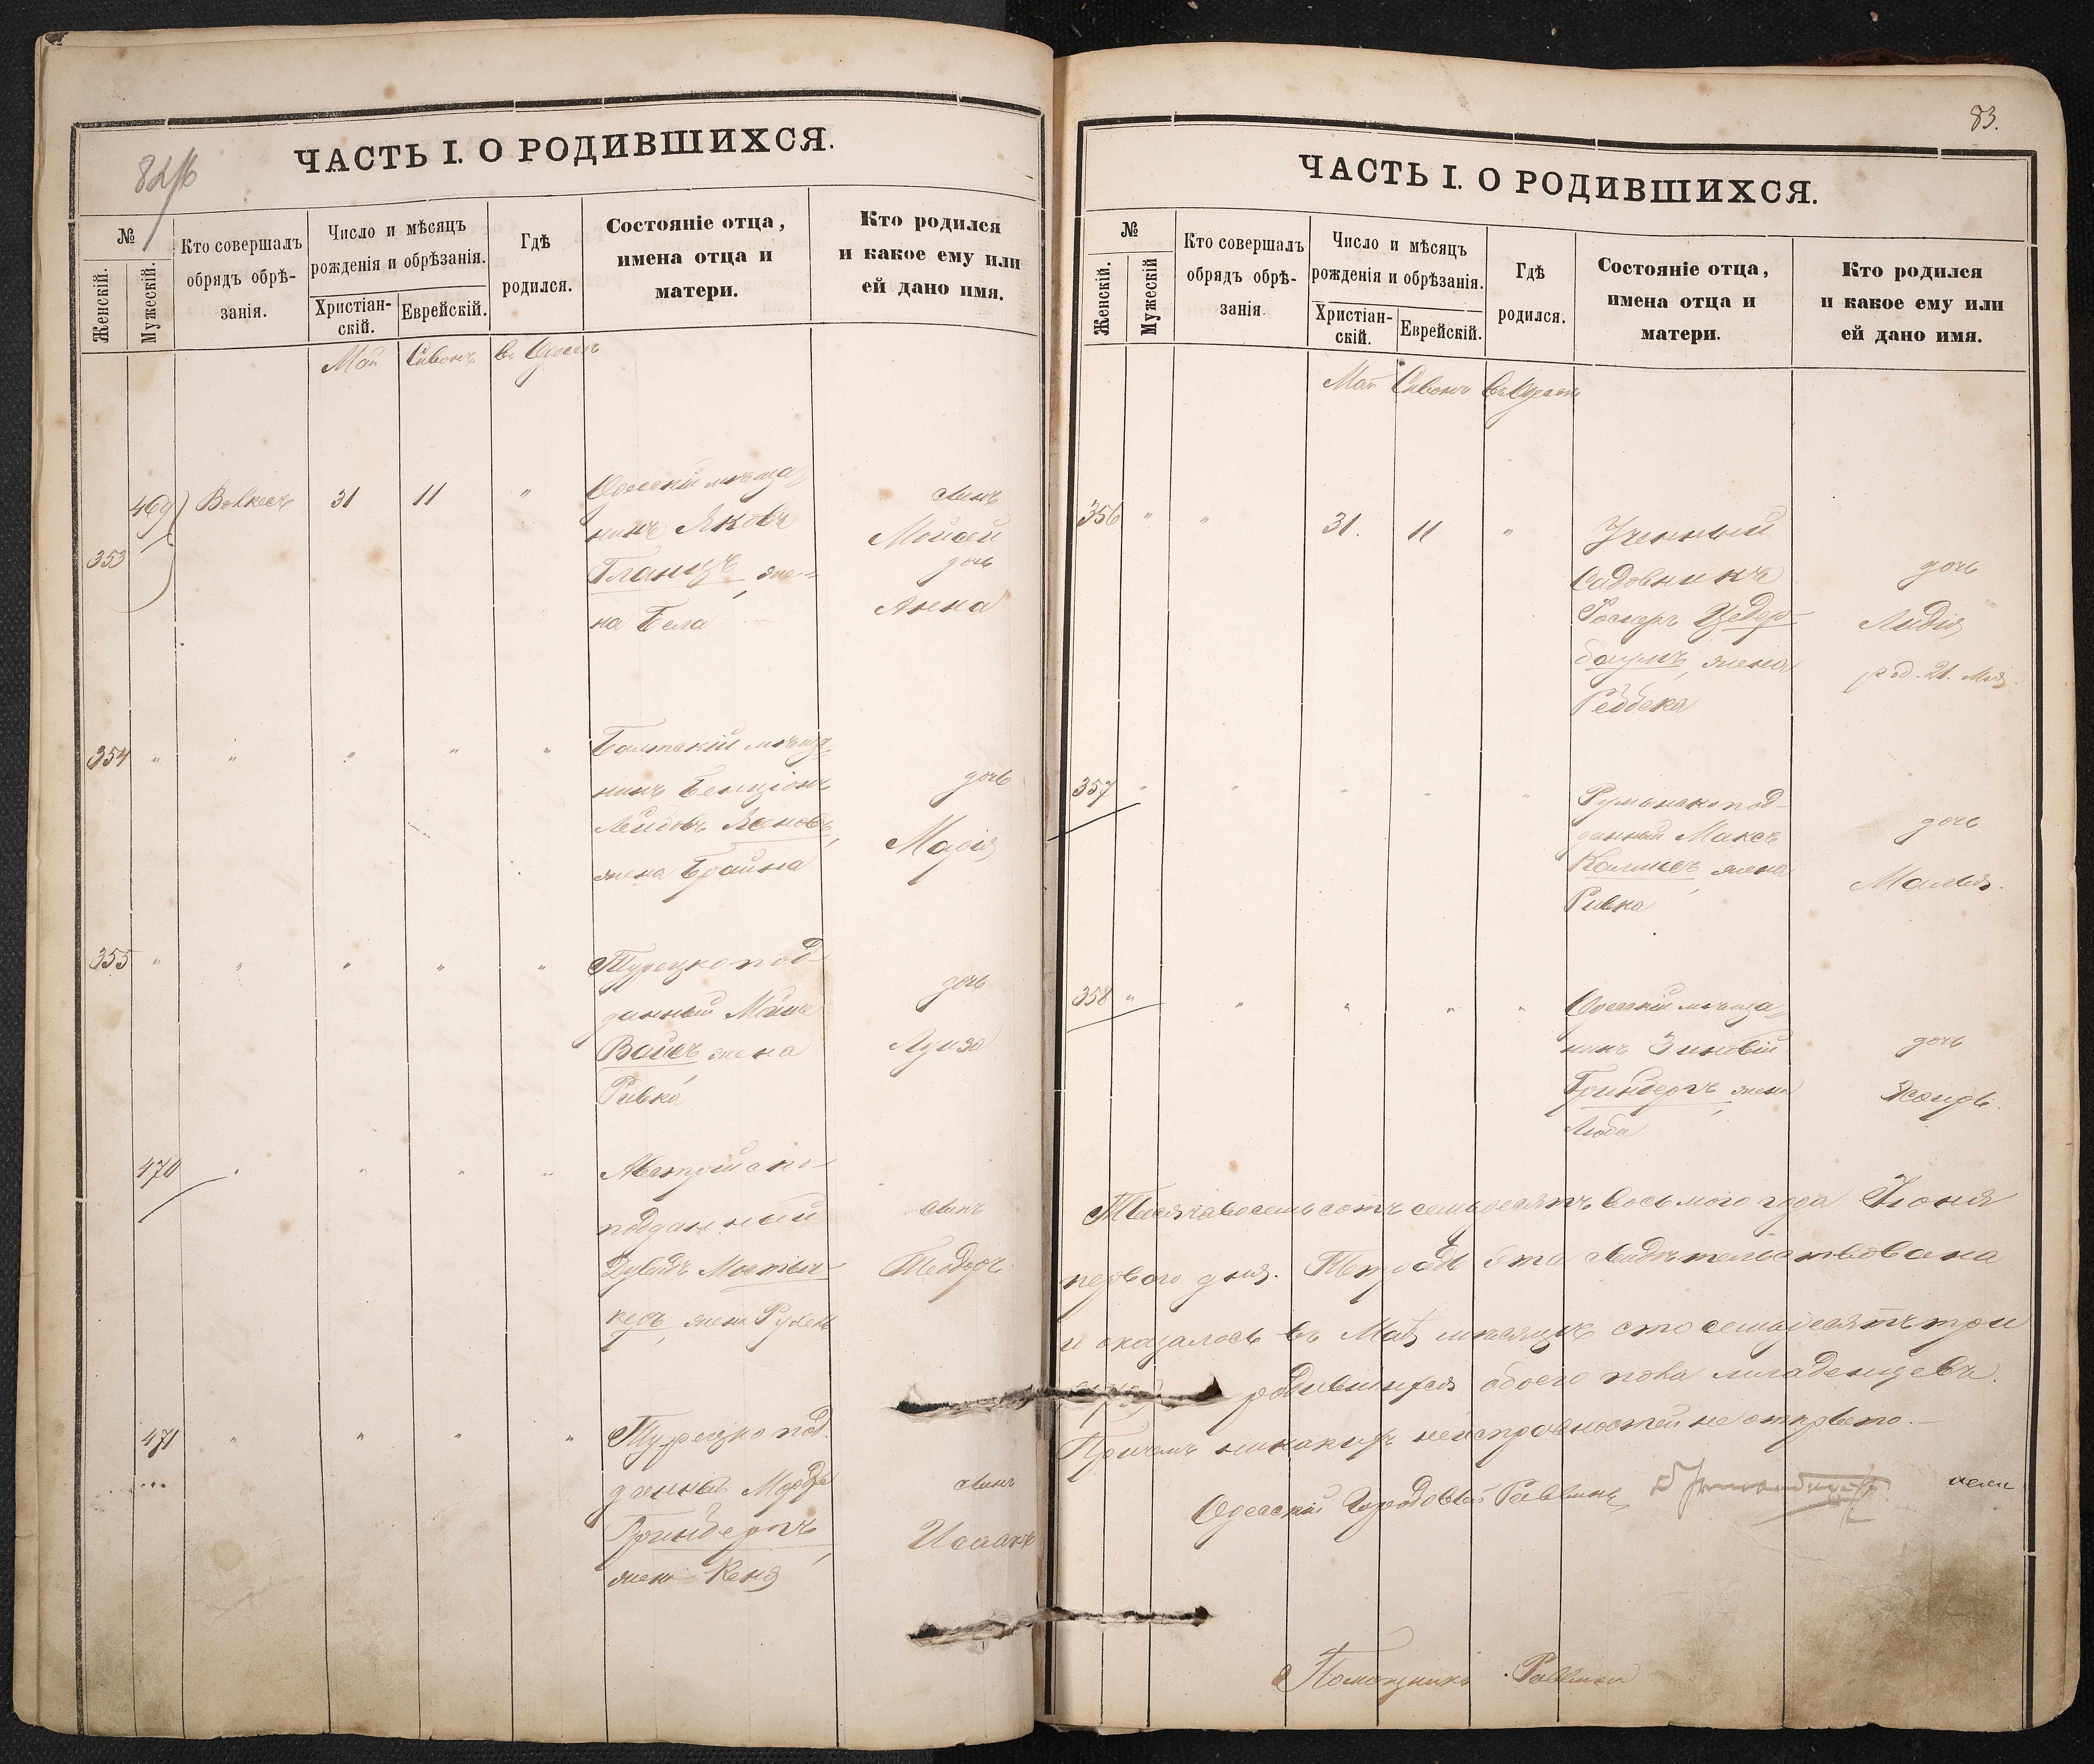 ЧАСТЬ I. О РОДИВШИХСЯ.
№
Женскій.
Мужескій.
Кто совершалъ
обрядъ обрѣ-
занія.
Число и мѣсяцъ
рожденія и обрѣзанія.
Христіан-
скій.
Еврейскій.
Гдѣ
родился.
Состояніе отца,
имена отца и
матери.
Кто родился
и какое ему или
ей дано имя.
Май Сивонъ Въ Одессѣ
469 31 11 " Одесскій мѣща-
нинъ Яковъ
Гланцъ, же-
на Бела
сынъ
Моисей
353
дочь
Анна
354 " " " " " Балтскій мѣща-
нинъ Бенціонъ
Лейбовъ
жена Брайна
дочь
Марія
355 " " " " " Турецкопод-
данный
Вайсъ жена
Ривка
дочь
Луиза
470 " " " " Австрійско-
подданный
Давидъ
жена
сынъ
Теодоръ
471 " " " " Турецкопод-
данный
Гринбергъ
жена Кеня
сынъ
Исаакъ
83.
ЧАСТЬ I. О РОДИВШИХСЯ.
№
Женскій.
Мужескій
Кто совершалъ
обрядъ обрѣ-
занія.
Число и мѣсяцъ
рожденія и обрѣзанія.
Христіан-
скій.
Еврейскій.
Гдѣ
родился.
Состояніе отца,
имена отца и
матери.
Кто родился
и какое ему или
ей дано имя.
Май Сивонъ Въ Одессѣ
356 " " 31. 11 " Ученый
Садовникъ
Цедер-
баумъ, жена
Реббека
дочь
Лидія
род. 21. Мая.
357 " " " " " Румынскопод-
данный Максъ
жена
Ривка
дочь
Малья.
358 " " " " " Одесскій мѣща-
нинъ Зиновій
Гринбергъ жена
Люба
дочь
Тысяча восемьсотъ семьдесятъ восьмого года Іюня
перваго дня. Тетрадь эта свидѣтельствована
и оказалось въ Маѣ мѣсяцѣ сто семьдесятъ три
родившихся обоего пола младенцевъ.
Причемъ никакихъ неисправностей не открыто.
Одесскій Городовой Раввинъ
Помощникъ Раввина